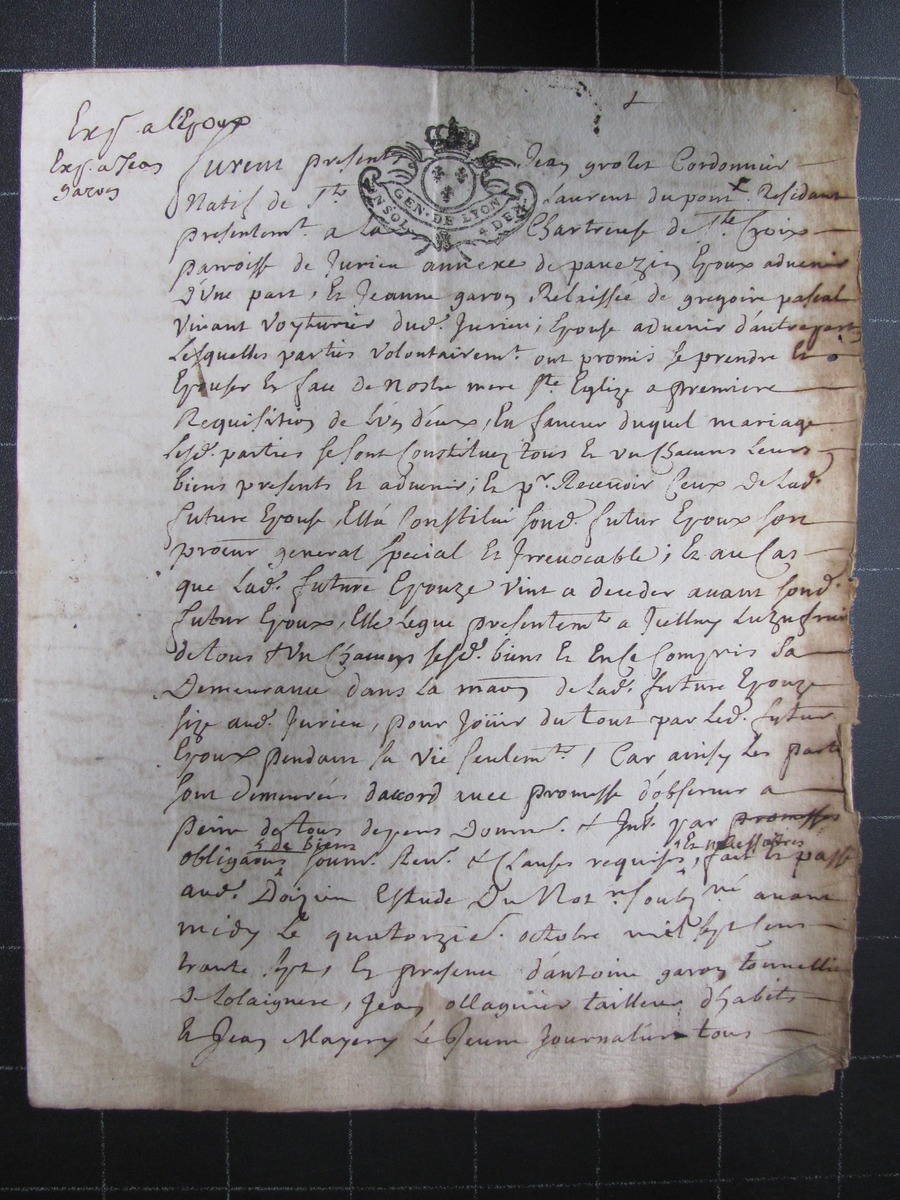 Exp. a l'Epoux
Exp. a Jean
garon
furent presents Jean grolet Cordonnier
GEN. DE LYON
4 DEN.
Natif de Ste Laurent du pont Residant
presentemt. a la Chartreuse de Ste Croix
parroisse de Jurieu annexe de pavezin Epoux advenir
d'Une part, Et Jeanne garon Relaissée de gregoire pascal
Vivant Voyturier dud. Jurieu; Epouse advenir d'autre part
Lesquelles parties volontairemt. ont promis se prendre Et
Epouser En face de Nostre mere Ste Eglize a premiere
Requisition de L'Un d'eux, En faveur duquel mariage
Lesd. parties se sont Constituez tous Et un Chacuns Leurs
biens presents Et advenir; Et pr. Recevoir Ceux de Lad.
future Epouse, Ella Constitué sond. futur Epoux son
procur general special Et Irrevocable; Et au Cas
que Lad. future Epouze vint a deceder avant sond.
futur Epoux, Elle Legue presentemt. a Icelluy Luzufruit
de tous & Un Chacuns sesd. biens Et En Ce Compris Sa
Demeurance dans La maon de Lad. future Epouze
size aud. Jurieu, pour Joüir du tout par Led. futur
Epoux pendant sa vie seulemt., Car ainsy Les parties
sont demeurées daccord avec promesse d'observer a
peine de tous depens Domm. & Int. par promesses
5 de biens Et necessaires
obligaons soum. Ren. & Clauses requises, fait Et passé
aud. Doizieu Estude Du Not. re soubzné avant
midy Le quatorzie. octobre mil sept Cens
trante sept, En presence d'antoine garon tonnellier
De Colaignere, Jean ollagnier tailleur d'habits
Et Jean Mayery Le Jeune Journalier tous